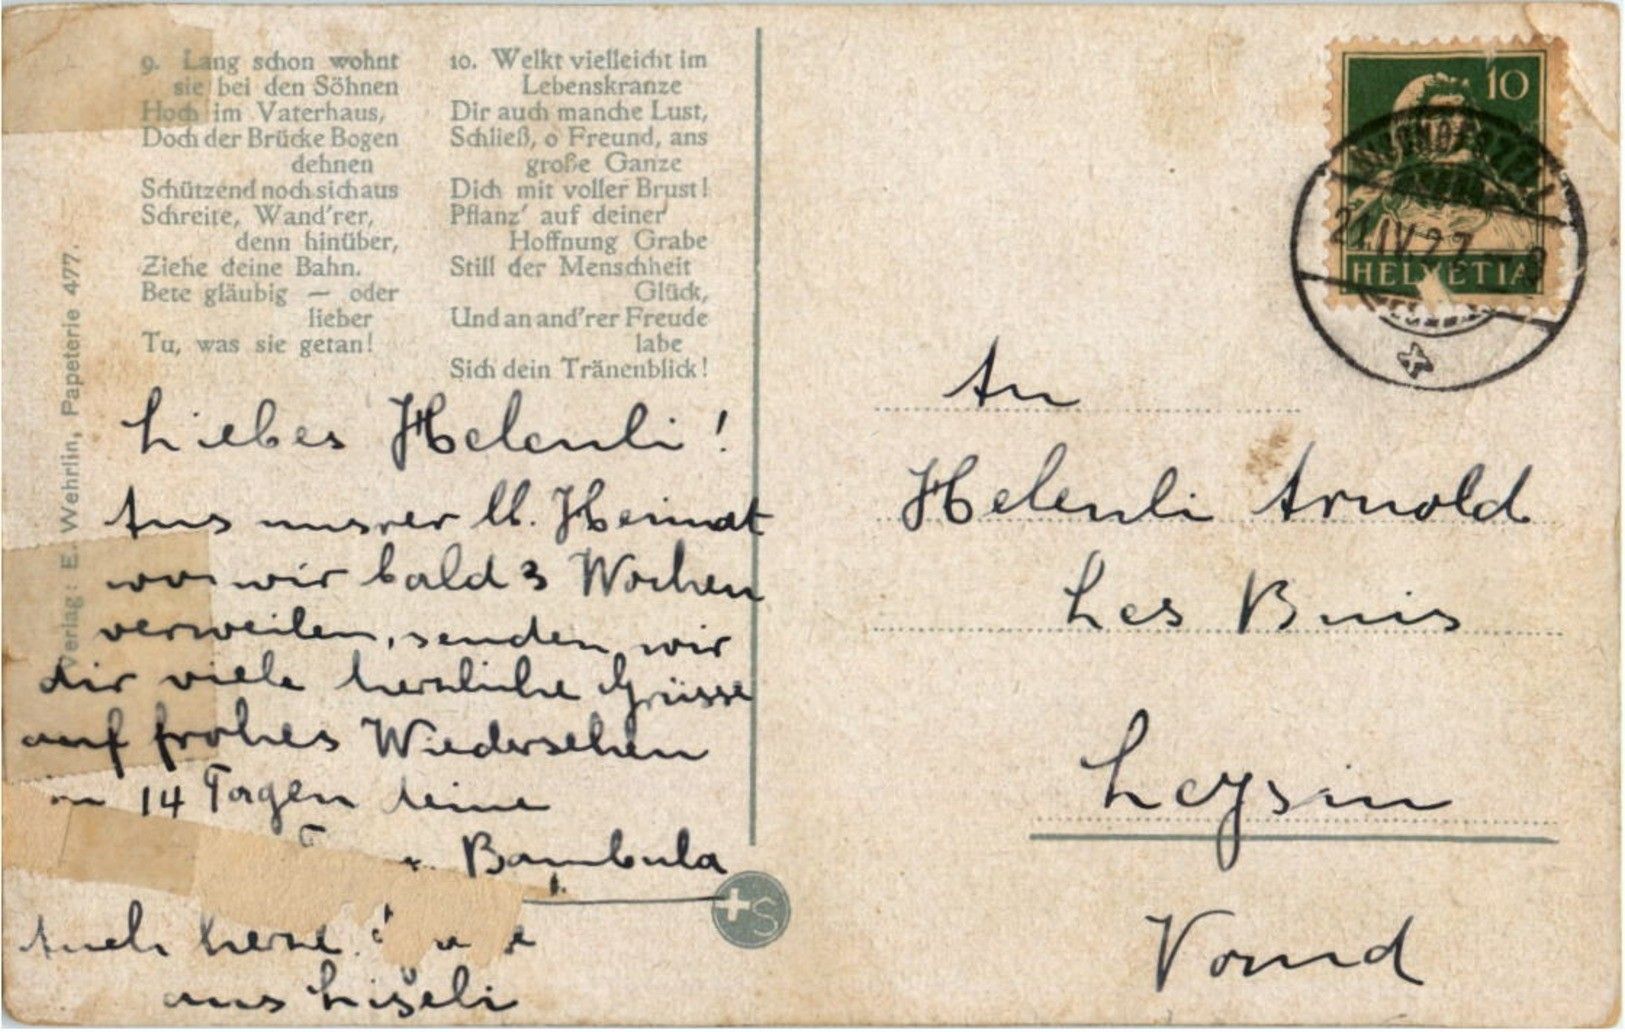 9. Lang schon wohnt
sie bei den Söhnen
Hoch im Vaterhaus,
Doch der Brücke Bogen
dehnen
Schützend noch sich aus
Schreite, Wand'rer,
denn hinüber,
Ziehe deine Bahn.
Bete gläubig — oder
lieber
Tu, was sie getan!
10. Welkt vielleicht im
Lebenskranze
Dir auch manche Lust,
Schließ, o Freund, ans
große Ganze
Dich mit voller Brust!
Pflanz' auf deiner
Hoffnung Grabe
Still der Menschheit
Glück,
Und an and'rer Freude
labe
Sich dein Tränenblick!
Verlag: E. Wehrlin, Papeterie 477.
Liebes Helenli!
Aus unsrer lb. Heimat
wo wir bald 3 Wochen
verweilen, senden wir
dir viele herzliche Grüsse
auf frohes Wiedersehen
in 14 Tagen deine
Bambula
Auch
aus Liseli
+S
10
HELVETIA
BISCHOFSZELL
21.IV.27
An
Helenli Arnold
Les Buis
Leysin
Vaud